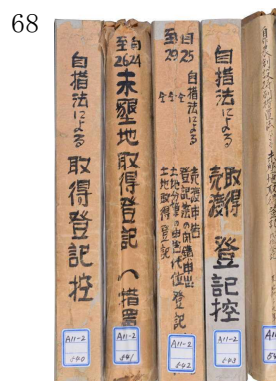 68
自措法による
取得登記控
A11-2
540
自24
至26
未墾地取得登記へ措置
A11-2
541
自25
至29
自措法による
〃
〃
売渡申告
登記簿の閉鎖申出
土地分筆の申告代位登記
土地取得登記
A11-2
542
自措法による
取得
売渡
登記控
A11-2
543